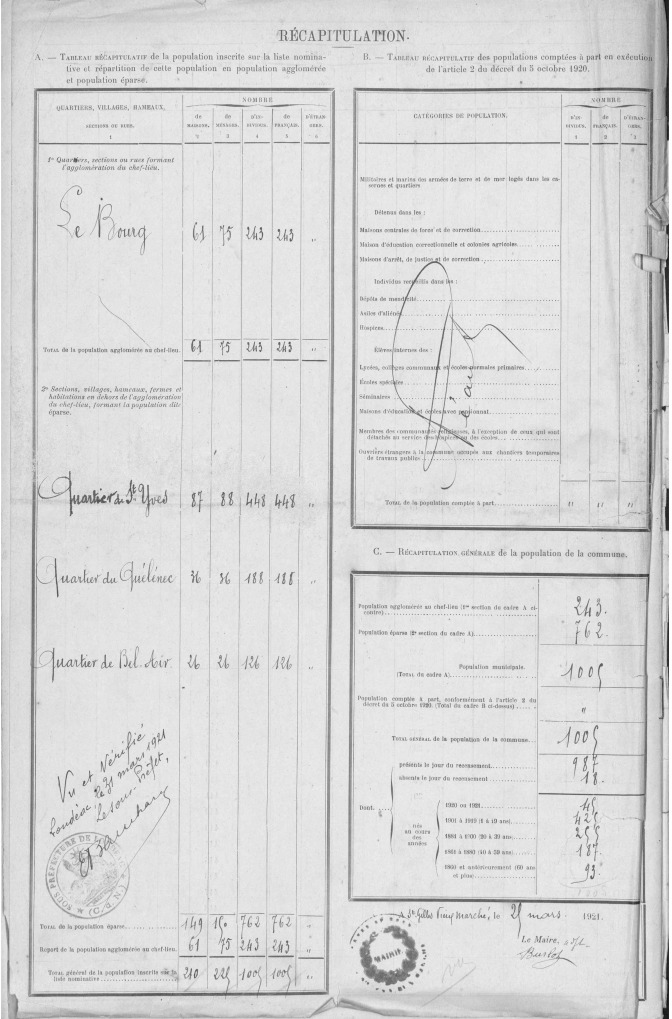 RÉCAPITULATION.
A. — TABLEAU RÉCAPITULATIF de la population inscrite sur la liste nomina-
tive et répartition de cette population en population agglomérée
et population éparse.
NOMBRE
QUARTIERS, VILLAGES, HAMEAUX,
SECTIONS OU RUES.
de MAISONS. de MÉNAGES. D'IN- DIVIDUS. de FRANÇAIS. D'ÉTRAN- GERS.
1 2 3 4 5 6
1º Quartiers, sections ou rues formant
l'agglomération du chef-lieu.
Le Bourg 61 75 243 243 "
TOTAL de la population agglomérée au chef-lieu. 61 75 243 243 "
2º Sections, villages, hameaux, fermes et
habitations en dehors de l'agglomération
du chef-lieu, formant la population dite
éparse.
Quartier de St Yves 87 88 448 448 "
Quartier du Quélénec 36 36 188 188 "
Quartier de Bel. Air 26 26 126 126 "
Vu et Vérifié
Loudéac, le 31 mars 1921
Le sous-Préfet,
SOUS-PRÉFECTURE DE
(C.-D.-N.)
TOTAL de la population éparse. 149 150 762 762 "
Report de la population agglomérée au chef-lieu. 61 75 243 243 "
TOTAL général de la population inscrite sur la
liste nominative 210 225 1005 1005 "
B. — TABLEAU RÉCAPITULATIF des populations comptées à part en exécution
de l'article 2 du décret du 5 octobre 1920.
NOMBRE
CATÉGORIES DE POPULATION.
D'IN- DIVIDUS. de FRANÇAIS. D'ÉTRAN- GERS.
1 2 3
Militaires et marins des armées de terre et de mer logés dans les ca-
sernes et quartiers
Détenus dans les :
Maisons centrales de force et de correction
Maison d'éducation correctionnelle et colonies agricoles
Maisons d'arrêt, de justice et de correction
Individus recueillis dans les :
Dépôts de mendicité
Asiles d'aliénés
Hospices
Élèves internes des :
Lycées, collèges communaux et écoles normales primaires
Écoles spéciales
Séminaires
Maisons d'éducation et écoles avec pensionnat
Membres des communautés religieuses, à l'exception de ceux qui sont
détachés au service des hospices ou des écoles
Ouvriers étrangers à la commune occupés aux chantiers temporaires
de travaux publics
Néant
TOTAL de la population comptée à part " " "
C. — RÉCAPITULATION GÉNÉRALE de la population de la commune.
Population agglomérée au chef-lieu (1re section du cadre A ci-
contre) 243.
Population éparse (2e section du cadre A) 762.
Population municipale.
(TOTAL du cadre A) 1005
Population comptée à part, conformément à l'article 2 du
décret du 5 octobre 1920. (Total du cadre B ci-dessus) "
TOTAL GÉNÉRAL de la population de la commune. 1005
Dont.
présents le jour du recensement 987
absents le jour du recensement 18.
nés
au cours
des
années
1920 ou 1921 45
1901 à 1919 (2 à 19 ans) 425
1881 à 1900 (20 à 39 ans) 255
1861 à 1880 (40 à 59 ans) 187
1860 et antérieurement (60 ans
et plus) 93.
A St Gilles Vieux Marché, le 29 mars 1921.
Le Maire,
MAIRIE